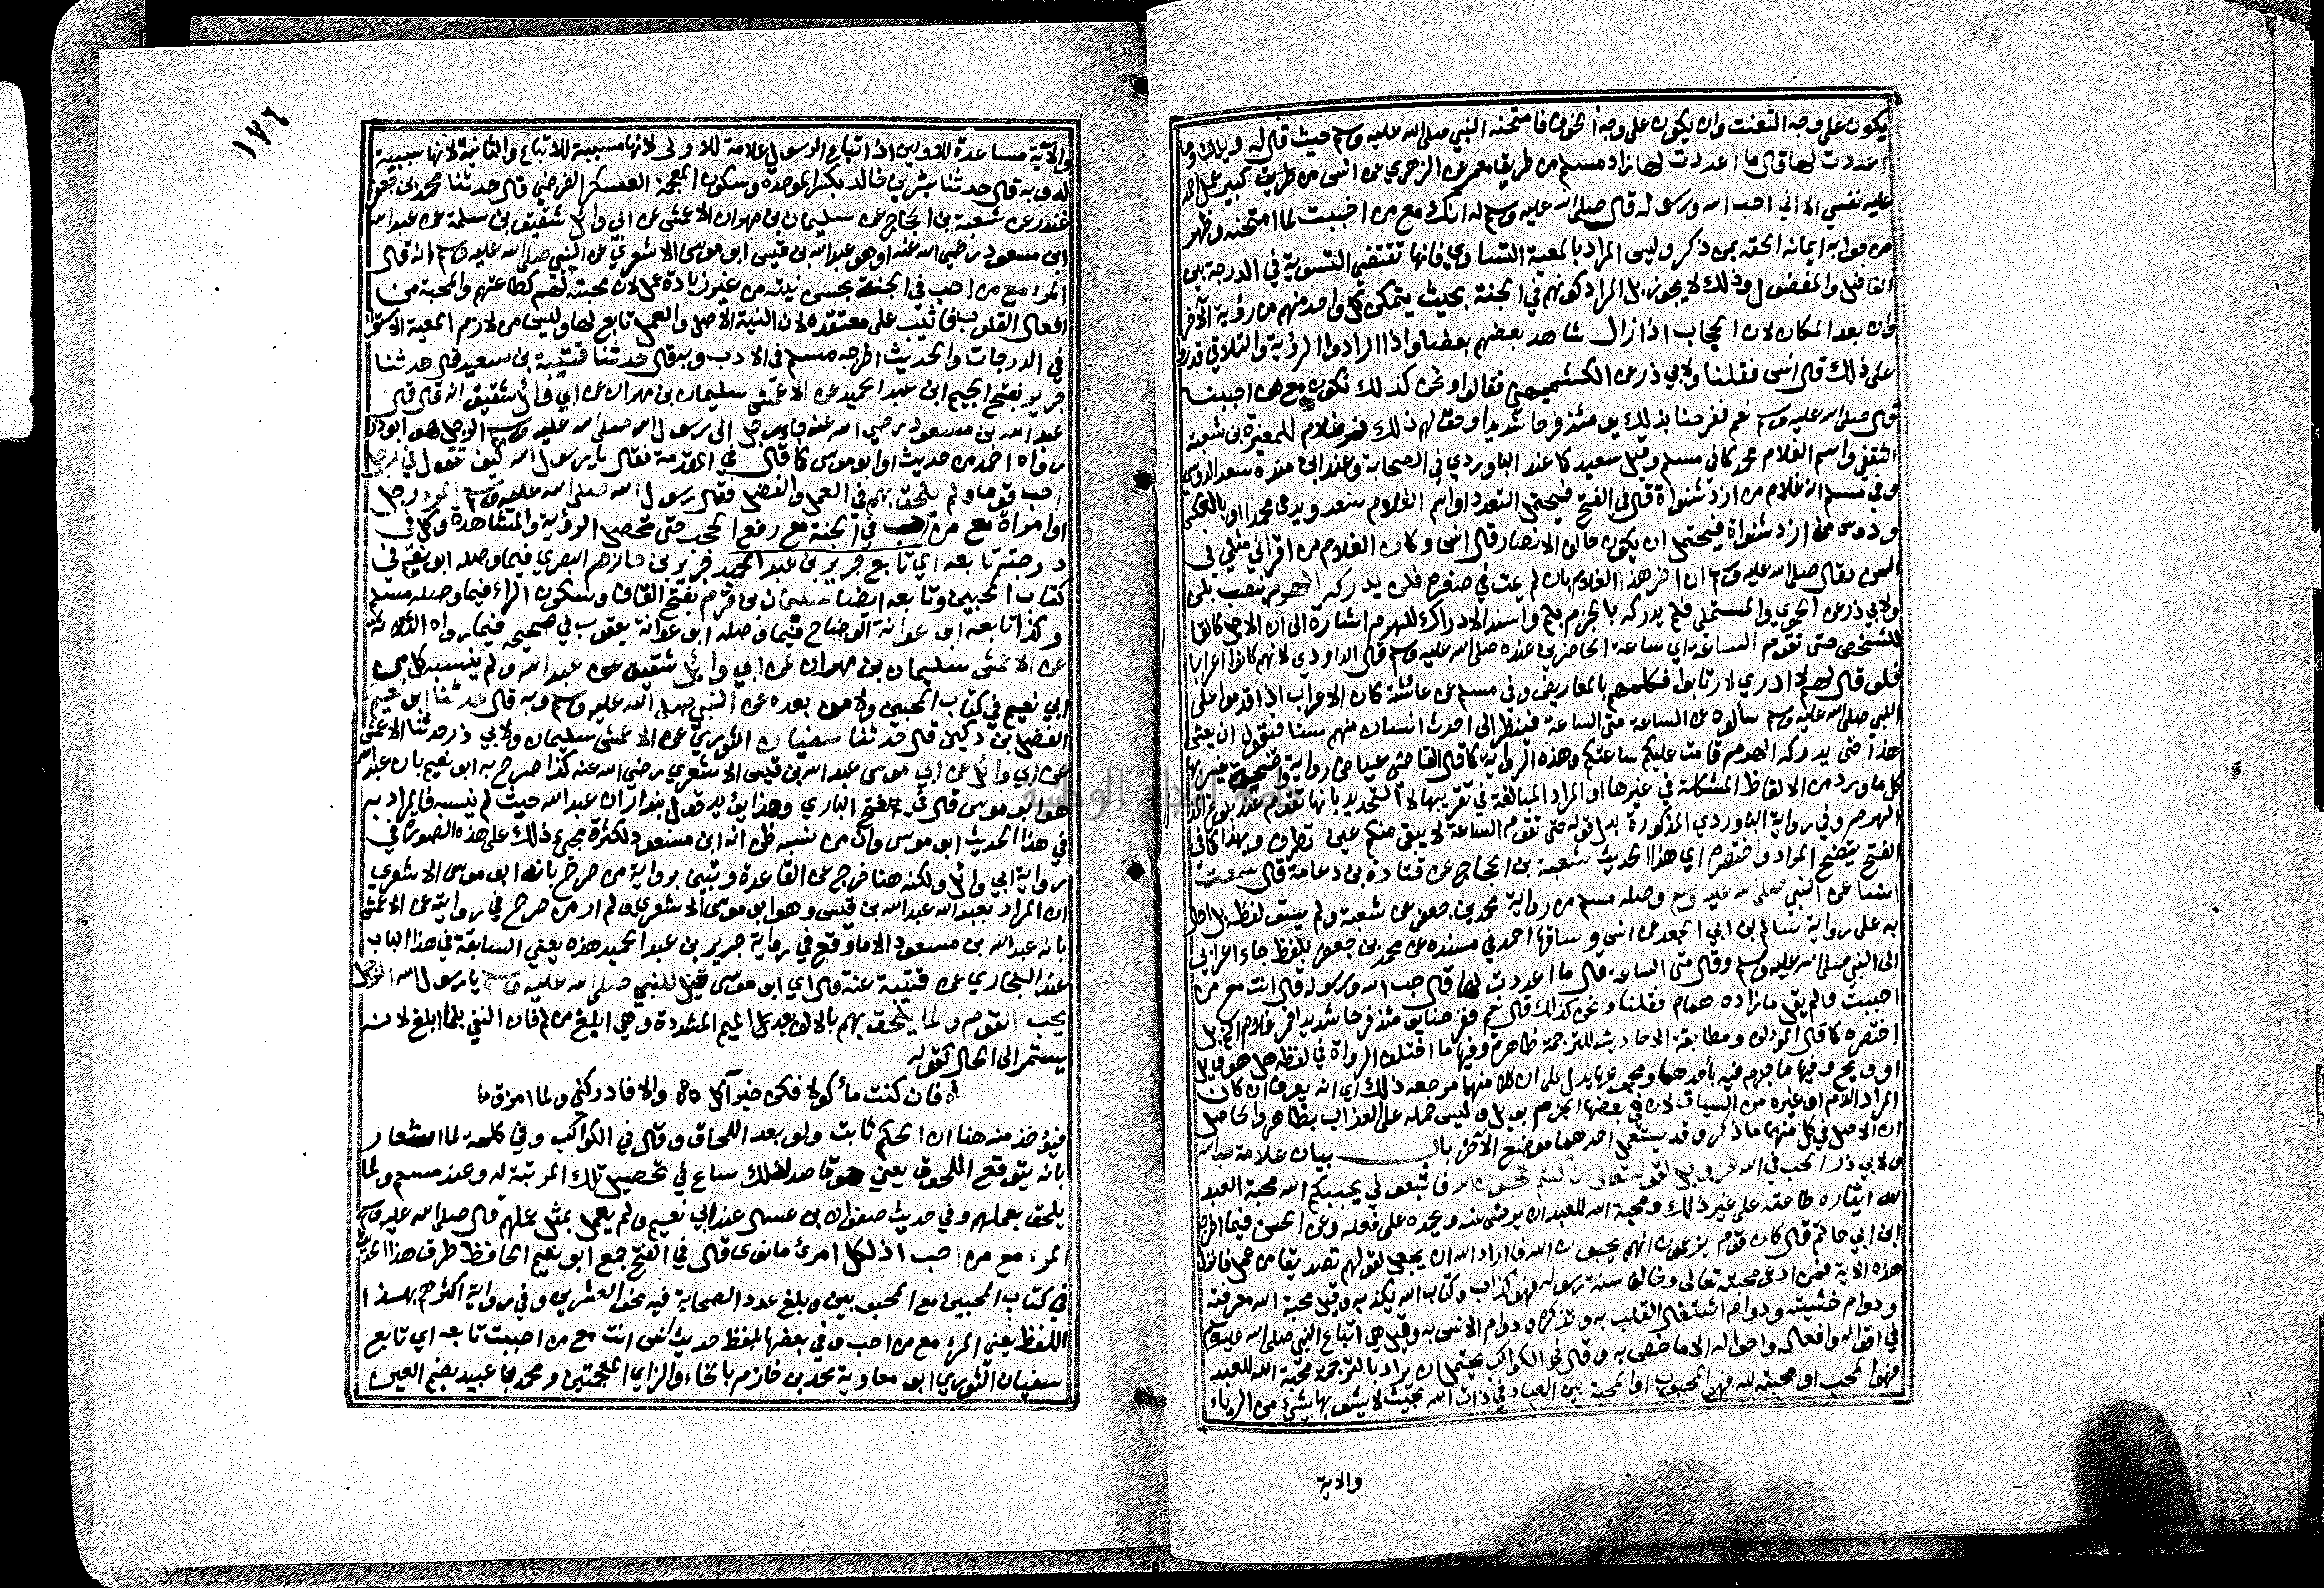 يكون على وجه التعنت وان يكون على وجه الخوف فامتحنه النبي صلى الله عليه وسلم حيث قال له ويلك وما
اعددت لها قال ما اعددت لها زاد مسلم من طريق معمر عن الزهري عن انس من كبير عمل احمد
عليه نفسي الا اني احب الله ورسوله قال صلى الله عليه وسلم له انك مع من احببت لما امتحنه وظهر
من جوابه ايمانه الحقه بمن ذكر وليس المراد بالمعية التساوي فانها تقتضي التسوية في الدرجة بين
الفاضل والمفضول وذلك لا يجوز بل المراد كونهم في الجنة بحيث يتمكن كل واحد منهم من رؤية الآخر
وان بعد المكان لان الحجاب اذا زال شاهد بعضهم بعضا واذا ارادوا الرؤية والتلاقي قدروا
على ذلك قال انس فقلنا ولابي ذر عن الكشميهني فقالوا ونحن كذلك نكون مع من احببنا
قال صلى الله عليه وسلم نعم ففرحنا بذلك يومئذ فرحا شديدا وحق لهم ذلك فمر غلام للمغيرة بن شعبة
الثقفي واسم الغلام محمد كما في مسلم وقيل سعيد كما عند الباوردي في الصحابة وعند ابن منده سعد الدوسي
وفي مسلم انه غلام من ازد شنوأة قال في الفتح فيحتمل التعدد او اسم الغلام سعد ويدعى محمدا او بالعكس
ودوس من ازد شنوأة فيحتمل ان يكون حالف الانصار قال انس وكان الغلام من اقراني مثلي في
السن فقال صلى الله عليه وسلم ان اخر هذا الغلام بان لم يمت في صغره فلن يدركه الهرم بنصب بلن
ولابي ذر عن الحموي والمستملي فلم يدركه بالجزم بلم واسند الادراك للهرم اشارة الى ان الاجل كالقاصد
للشخص حتى تقوم الساعة اي ساعة الحاضرين عنده صلى الله عليه وسلم قال الداودي لانهم كانوا اعرابا
فلو قال لهم لا ادري لارتابوا فكلمهم بالمعاريض وفي مسلم عن عائشة كان الاعراب اذا قدموا على
النبي صلى الله عليه وسلم سألوه عن الساعة متى الساعة فينظر الى احدث انسان منهم سنا فيقول ان يعش
هذا حتى يدركه الهرم قامت عليكم ساعتكم وهذه الرواية كما قال القاضي عياض رواية واضحة تفسر بها
كل ما ورد من الالفاظ المشكلة في غيرها او المراد المبالغة في تقريبها لا التحديد بانها تقوم عند بلوغ المذكور
الهرم وفي رواية الباوردي المذكورة بدل قوله حتى تقوم الساعة لا يبقى منكم عين تطرف وبهذا كما في
الفتح يتضح المراد واختصر اي هذا الحديث شعبة بن الحجاج عن قتادة بن دعامة قال سمعت
انسا عن النبي صلى الله عليه وسلم وصله مسلم من رواية محمد بن جعفر عن شعبة ولم يسق لفظه بل احال
به على رواية سالم بن ابي الجعد عن انس وساقها احمد في مسنده عن محمد بن جعفر بلفظ جاء اعرابي
الى النبي صلى الله عليه وسلم وقال متى الساعة قال ما اعددت لها قال حب الله ورسوله قال انت مع من
احببت ولم يقل ما زاده همام فقلنا ونحن كذلك قال نعم ففرحنا يومئذ فرحا شديدا فمر غلام الخ بل
اختصره كما قال المؤلف ومطابقة الاحاديث للترجمة ظاهرة وفيها ما اختلف الرواة في لفظه هل هو ويل
او ويح وفيها ما جزم فيه بأحدهما ومجموعها يدل على ان كلا منهما مرجعه ذلك اي انه يعرف ان كان
المراد الذم او غيره من السياق لان في بعضها الجزم بويل وليس حمله على العذاب بظاهر والحاصل
ان الاصل في كل منهما ما ذكر وقد يستعمل احدهما موضع الآخر باب بيان علامة حب الله
ولابي ذر الحب في الله عز وجل لقوله تعالى ان كنتم تحبون الله فاتبعوني يحببكم الله محبة العبد
لله ايثاره طاعته على غير ذلك ومحبة الله للعبد ان يرضى عنه ويحمده على فعله وعن الحسن فيما اخرجه
ابن ابي حاتم قال كان قوم يزعمون انهم يحبون الله فاراد الله ان يجعل لقولهم تصديقا من عمل فانزل
هذه الاية فمن ادعى محبته تعالى وخالف سنة رسوله فهو كذاب وكتاب الله يكذبه وقيل محبة الله معرفته
ودوام خشيته ودوام اشتغال القلب به وتذكره ودوام الانس به وقيل هي اتباع النبي صلى الله عليه وسلم
في اقواله وافعاله واحواله الا ما خص به وقال في الكواكب يحتمل ان يراد بالترجمة محبة الله للعبد
فهو المحب او محبته لله فهو المحبوب او المحبة بين العباد في ذات الله بحيث لا يشوبها شيء من الرياء
والاية
١٧٦
والآية مساعدة للاوليين اذ اتباع الرسول علامة للاولى لانها مسببة للاتباع والثانية لانها سببية
له وبه قال حدثنا بشر بن خالد بكسر الموحدة وسكون المعجمة العسكري الفرضي قال حدثنا محمد بن جعفر
غندر عن شعبة بن الحجاج عن سليمان بن مهران الاعمش عن ابي وائل شقيق بن سلمة عن عبد الله
ابن مسعود رضي الله عنه او هو عبد الله بن قيس ابو موسى الاشعري عن النبي صلى الله عليه وسلم انه قال
المرء مع من احب في الجنة بحسن نيته من غير زيادة عمل لان محبته لهم كطاعتهم والمحبة من
افعال القلوب فاثيب على معتقده لان النية الاصل والعمل تابع لها وليس من لازم المعية الاستواء
في الدرجات والحديث اخرجه مسلم في الادب وبه قال حدثنا قتيبة بن سعيد قال حدثنا
جرير بفتح الجيم ابن عبد الحميد عن الاعمش سليمان بن مهران عن ابي وائل شقيق انه قال قال
عبد الله بن مسعود رضي الله عنه جاء رجل الى رسول الله صلى الله عليه وسلم الرجل هو ابو ذر
رواه احمد من حديثه او ابو موسى كما قال في المقدمة فقال يا رسول الله كيف تقول في رجل
احب قوما ولم يلحق بهم في العمل والفضل فقال رسول الله صلى الله عليه وسلم المرء رجل
او امراة مع من احب في الجنة مع رفع الحجب حتى تحصل الرؤية والمشاهدة وكل في
درجته تابعه اي تابع جرير بن عبد الحميد جرير بن حازم البصري فيما وصله ابو نعيم في
كتاب المحبين وتابعه ايضا سليمان بن قرم بفتح القاف وسكون الراء فيما وصله مسلم
وكذا تابعه ابو عوانة الوضاح فيما وصله ابو عوانة يعقوب في صحيحه فيما رواه الثلاثة
عن الاعمش سليمان بن مهران عن ابي وائل شقيق عن عبد الله ولم ينسبه كل من
ابي نعيم في كتاب المحبين ولا من بعده عن النبي صلى الله عليه وسلم وبه قال حدثنا ابو نعيم
الفضل بن دكين قال حدثنا سفيان الثوري عن الاعمش سليمان ولابي ذر حدثنا الاعمش
عن ابي وائل عن ابي موسى عبد الله بن قيس الاشعري رضي الله عنه كذا صرح به ابو نعيم بان عبد الله
هو ابو موسى قال في فتح الباري وهذا يؤيد قول بندار ان عبد الله حيث لم ينسبه فالمراد به
في هذا الحديث ابو موسى وان من نسبه ظن انه ابن مسعود لكثرة مجيء ذلك على هذه الصورة في
رواية ابي وائل ولكنه هنا خرج عن القاعدة وتبين برواية من صرح بانه ابو موسى الاشعري
ان المراد بعبد الله عبد الله بن قيس وهو ابو موسى الاشعري ولم ار من صرح في روايته عن الاعمش
بانه عبد الله بن مسعود الا ما وقع في رواية جرير بن عبد الحميد هذه يعني السابقة في هذا الباب
عند البخاري عن قتيبة عنه قال اي ابو موسى قيل للنبي صلى الله عليه وسلم يا رسول الله الرجل
يحب القوم ولما يلحق بهم بالالف بعد الميم المشددة وهي ابلغ من لم فان النفي بلما ابلغ لانه
يستمر الى الحال كقوله
فان كنت مأكولا فكن خير آكل والا فادركني ولما امزق
فيؤخذ منه هنا ان الحكم ثابت ولو بعد اللحاق وقال في الكواكب وفي كلمة لما اشعار
بانه يتوقع اللحوق يعني هو قاصد لذلك ساع في تحصيل تلك المرتبة له وعند مسلم ولما
يلحق بعملهم وفي حديث صفوان بن عسال عند ابي نعيم ولم يعمل بمثل عملهم قال صلى الله عليه وسلم
المرء مع من احب اذ لكل امرئ ما نوى قال في الفتح جمع ابو نعيم الحافظ طرق هذا الحديث
في كتاب المحبين مع المحبوبين وبلغ عدد الصحابة فيه نحو العشرين وفي رواية اكثرهم بهذا
اللفظ يعني المرء مع من احب وفي بعضها بلفظ حديث انس انت مع من احببت تابعه اي تابع
سفيان الثوري ابو معاوية محمد بن خازم بالخاء والزاي المعجمتين ومحمد بن عبيد بضم العين